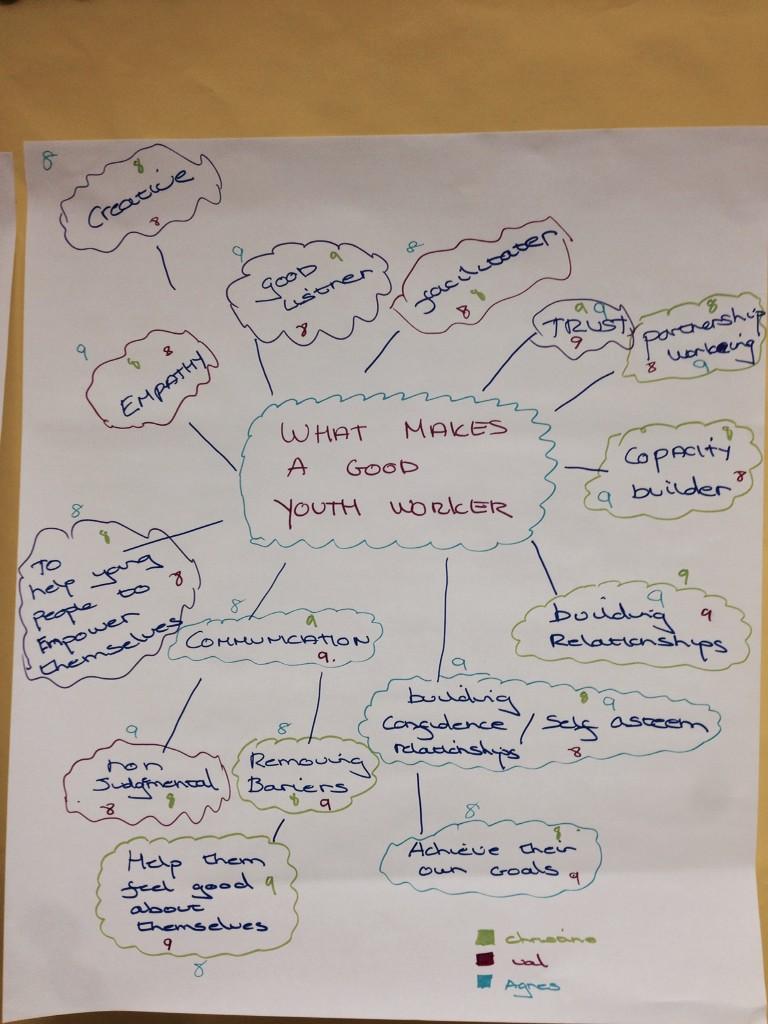 8
8
Creative
8
9
GOOD 9
Listner
8
8
facilitater
8
8
9 9
TRUST
9
8
partnership
workeing
8 9
9
8 8
EMPATHY
WHAT MAKES
A GOOD
YOUTH WORKER
8
COPACITY
builder
9 8
8
8
TO
help young
people to 8
Empower
themselves
8
9
COMMUNICATION
9.
9
9
building 9
Relationships
9
building 8 9
Congidence / Self asteem
relationships 8
9
non
Judgmental
8 8
8
Removing
Bariers
8 9
8
8
Achieve their
own Goals 9
Help them
feel good 9
about
themselves
9
8
val
Agnes